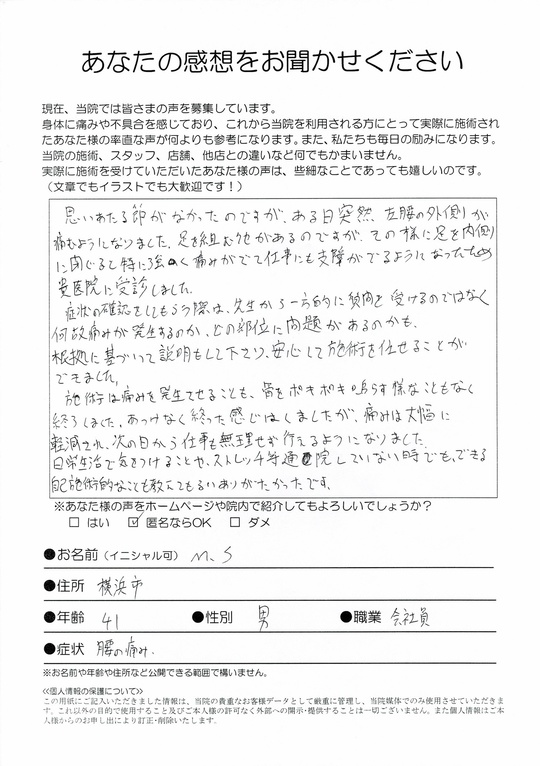 あなたの感想をお聞かせください
現在、当院では皆さまの声を募集しています。
身体に痛みや不具合を感じており、これから当院を利用される方にとって実際に施術され
たあなた様の率直な声が何よりも参考になります。また、私たちも毎日の励みになります。
当院の施術、スタッフ、店舗、他店との違いなど何でもかまいません。
実際に施術を受けていただいたあなた様の声は、些細なことであっても嬉しいのです。
（文章でもイラストでも大歓迎です！）
思いあたる節がなかったのですが、ある日突然、左腰の外側が
痛むようになりました。足を組む癖があるのですが、その様に足を内側
に閉じると特に強く痛みがでて仕事にも支障がでるようになったため
貴医院に受診しました。
症状の確認をしてもらう際は、先生から一方的に質問を受けるのではなく
何故痛みが発生するのか、どの部位に問題があるのかも、
根拠に基づいて説明もして下さり、安心して施術を任せることが
できました。
施術は痛みを発生させることも、骨をポキポキ鳴らす様なこともなく
終了しました。あっけなく終った感じはしましたが、痛みは大幅に
軽減され、次の日から仕事も無理せず行えるようになりました。
日常生活で気をつけることや、ストレッチ等通院していない時でも、できる
自己施術的なことも教えてもらいありがたかったです。
※あなた様の声をホームページや院内で紹介してもよろしいでしょうか？
□ はい ☑ 匿名ならOK □ ダメ
●お名前（イニシャル可） M.S
●住所 横浜市
●年齢 41 ●性別 男 ●職業 会社員
●症状 腰の痛み.
※お名前や年齢や住所など公開できる範囲で構いません。
≪個人情報の保護について≫
この用紙にご記入いただきました情報は、当院の貴重なお客様データとして厳重に管理し、当院媒体でのみ使用させていただきま
す。これ以外の目的で使用すること及びご本人様の許可なく外部への開示・提供することは一切ございません。また個人情報はご本
人様からのお申し出により訂正・削除いたします。